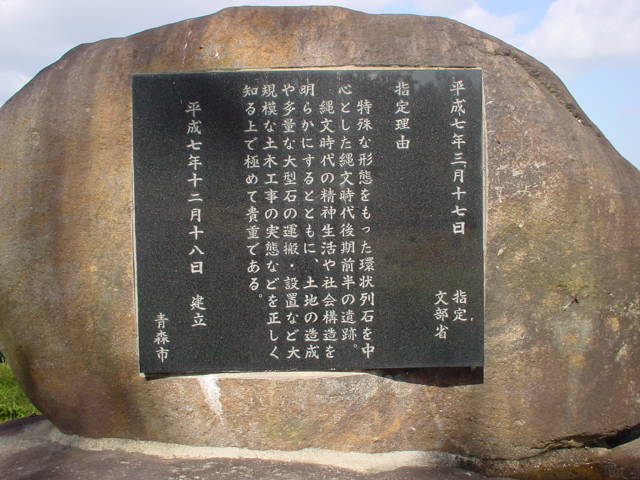 平成七年三月十七日　指定
文部省
指定理由
特殊な形態をもった環状列石を中
心とした縄文時代後期前半の遺跡。
縄文時代の精神生活や社会構造を
明らかにするとともに、土地の造成
や多量な大型石の運搬・設置など大
規模な土木工事の実態などを正しく
知る上で極めて貴重である。
平成七年十二月十八日　建立
青森市